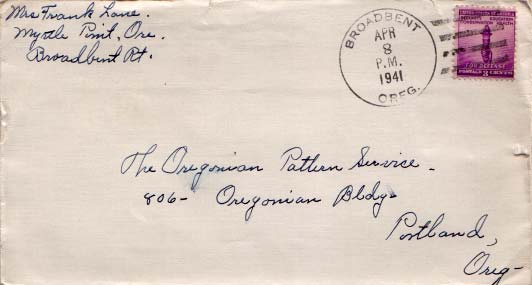 Mrs Frank Lane.
Myrtle Point, Ore.
Broadbent Rt.
BROADBENT
APR
8
P.M.
1941
OREG.
UNITED STATES OF AMERICA
SECURITY EDUCATION
CONSERVATION HEALTH
FOR DEFENSE
POSTAGE 3 CENTS
The Oregonian Pattern Service -
806- Oregonian Bldg-
Portland,
Oreg-